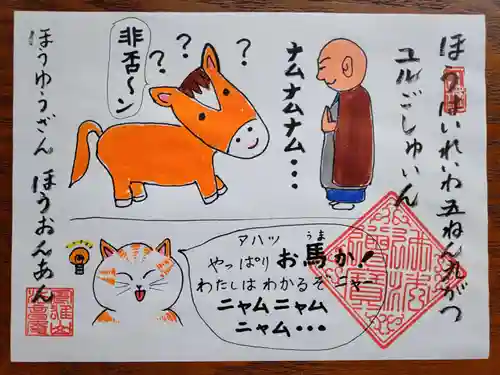 ほうはいれいわ五ねん九がつ
ユルごしゅいん
ナムナムナム・・・
？
？
？
非否〜ン
ほうゆうざん ほうおんあん
アハッ
うま
やっぱりお馬か！
わたしはわかるぞニャー
ニャムニャム
ニャム・・・